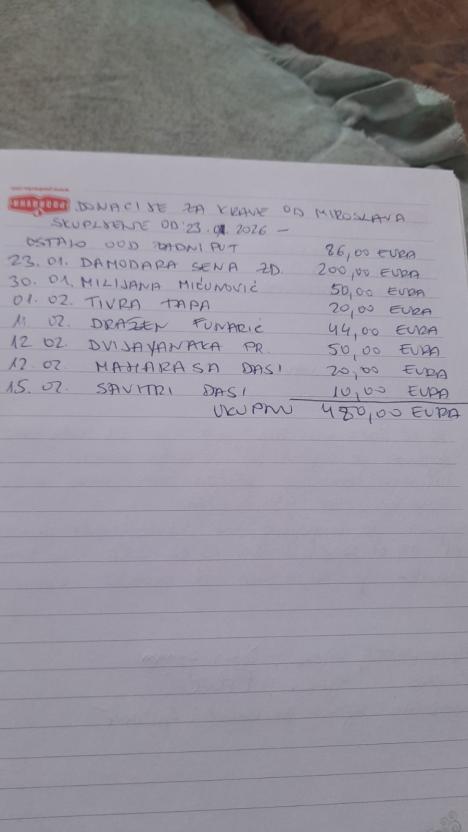 PODRAVKA
DONACIJE ZA KRAVE OD MIROSLAVA
SKUPLJENE OD 23. 01. 2026 –
OSTALO OOD ZADNJI PUT 86,00 EURA
23.01. DAMODARA SENA ZD. 200,00 EURA
30.01. MILIJANA MIĆUNOVIĆ 50,00 EURA
01.02. TIVRA TAPA 20,00 EURA
11 02. DRAŽEN FUNARIĆ 44,00 EURA
12 02. DVIJAYANAKA PR. 50,00 EURA
12.02. MAHARASA DASI 20,00 EURA
15.02. SAVITRI DASI 10,00 EURA
UKUPNO 480,00 EURA